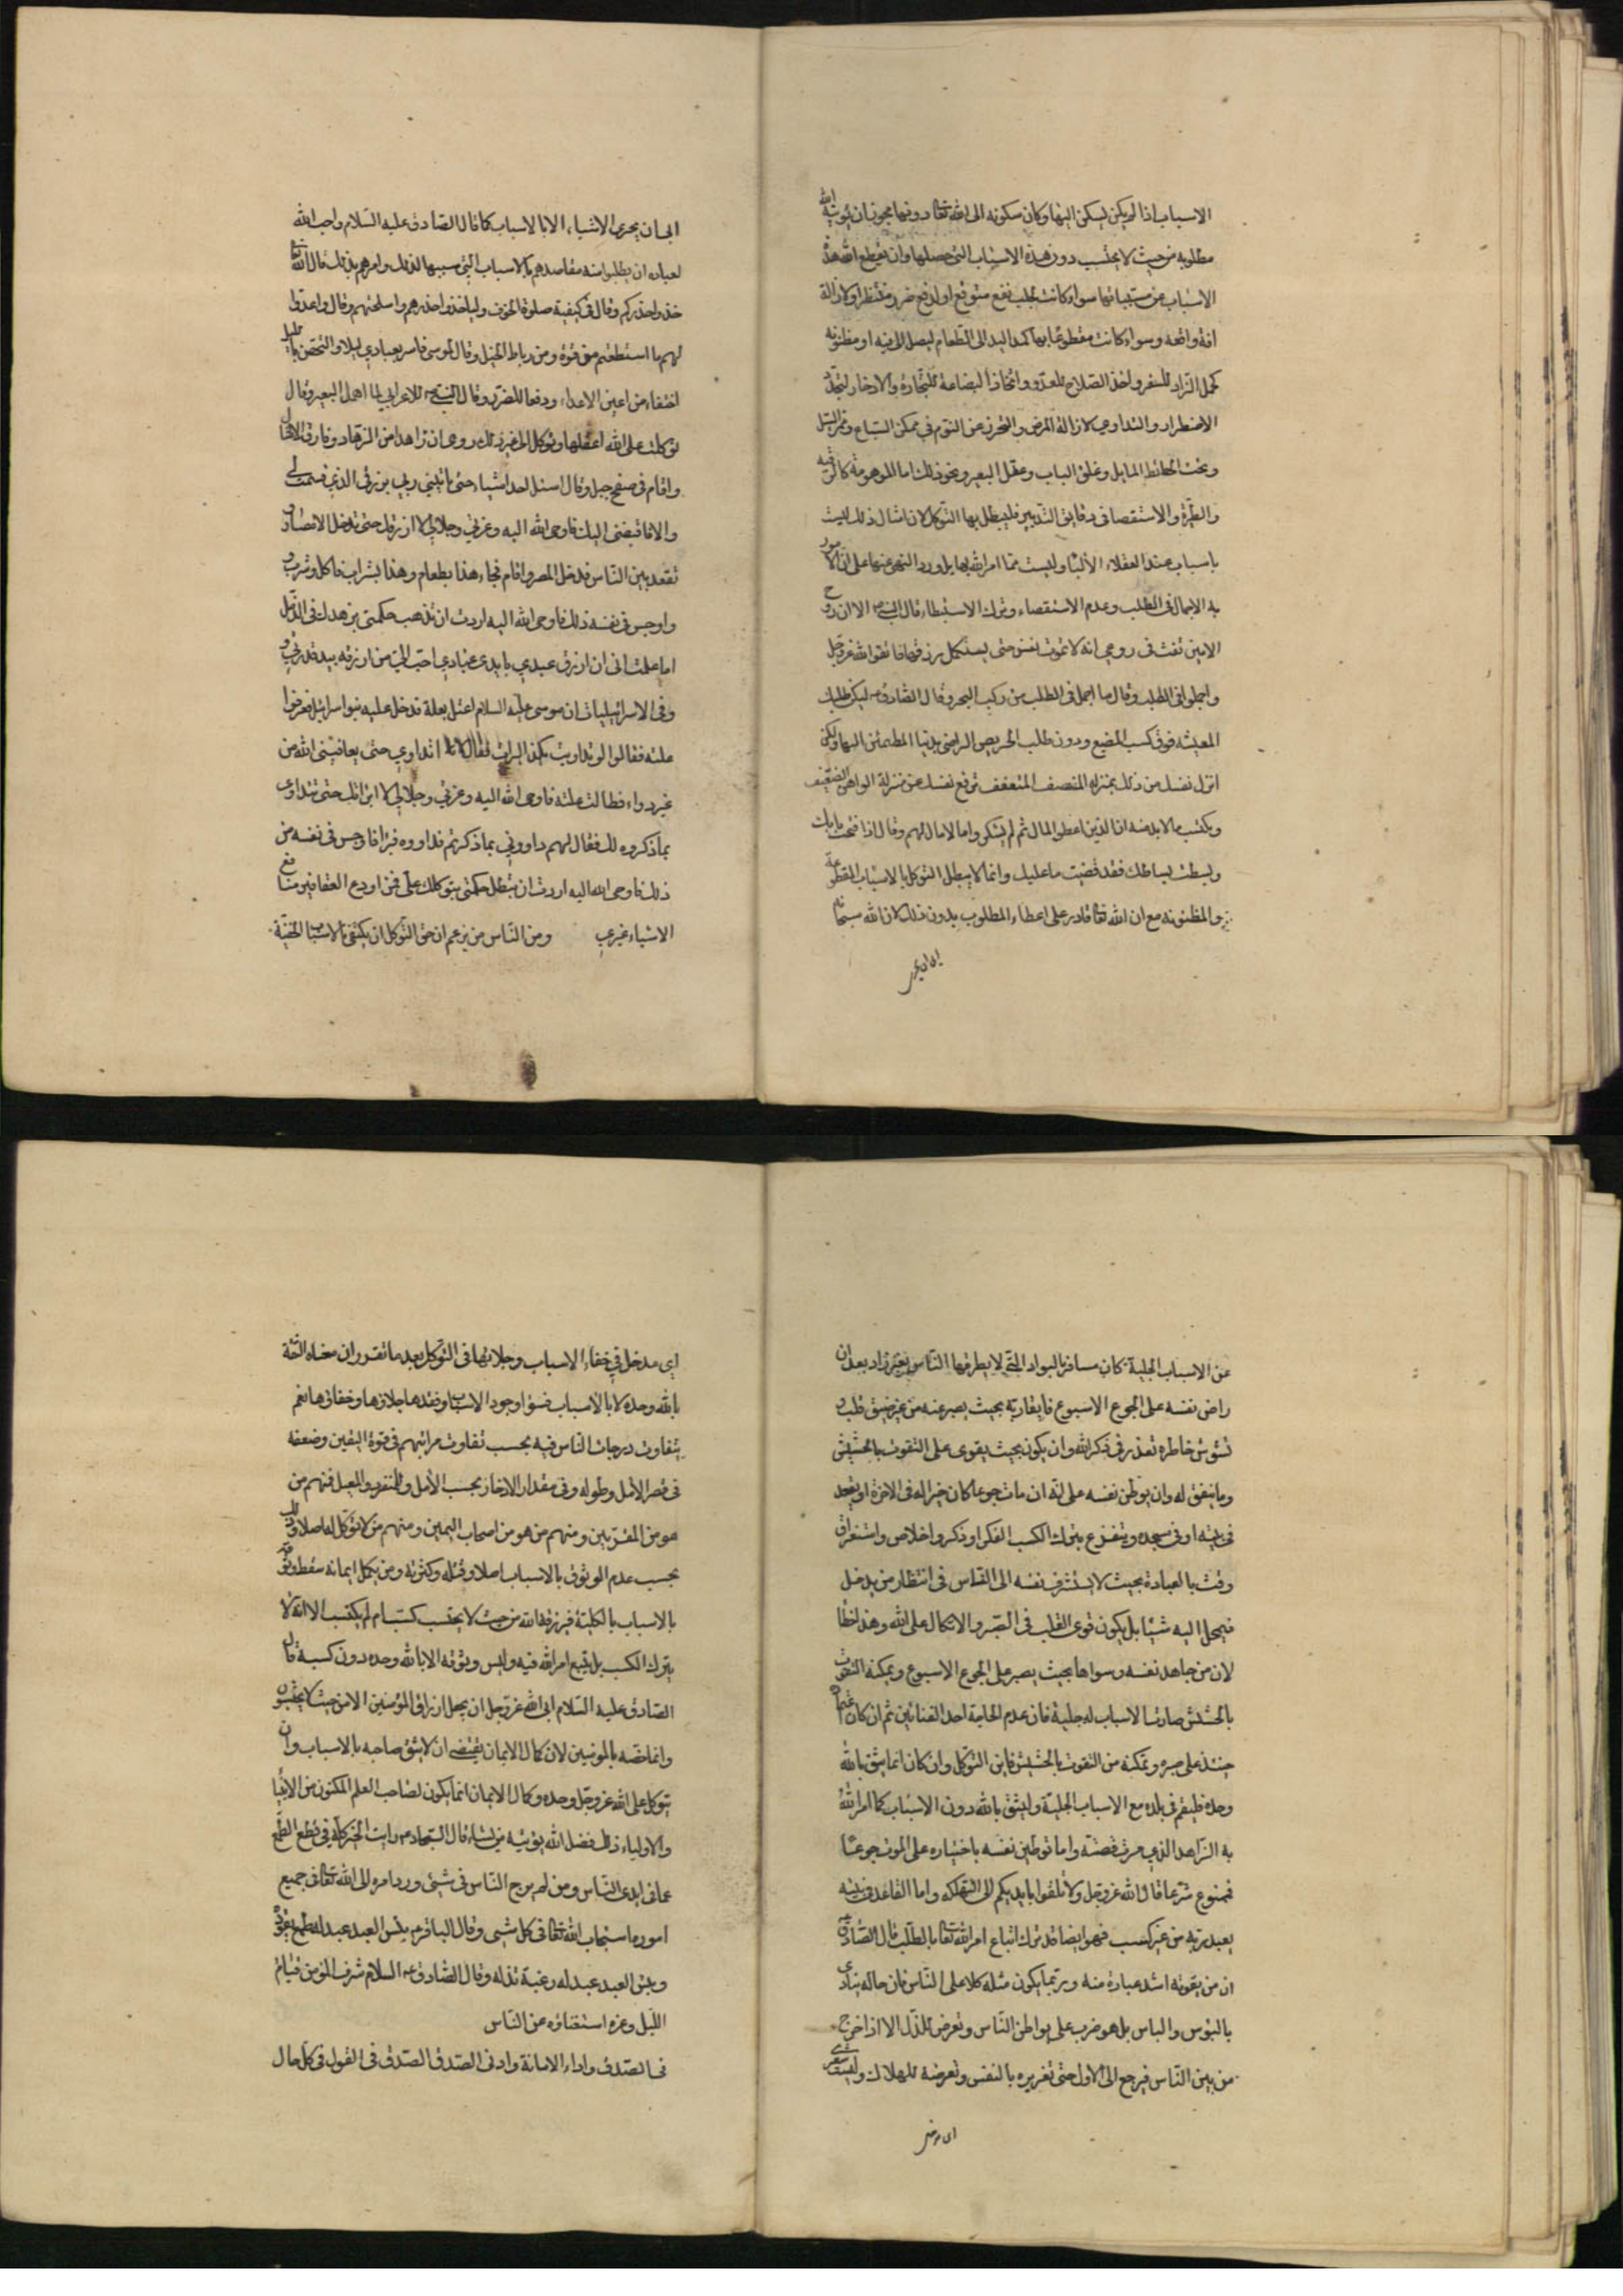 الاسباب اذا لم يكن يسكن اليها وكان سكونه الى الله تعالى دونها مجوزا ان يؤتيه الله
مطلوبه من حيث لا يحتسب دون هذه الاسباب التي حصلها وان يقطع الله هذه
الاسباب عن مسبباتها سواء كانت لجلب نفع متوقع او لدفع ضرر منتظر او لازالة
افة واقعه وسواء كانت مقطوعا بها كمد اليد الى الطعام ليصل الى فيه او مظنونه
كحمل الزاد للسفر واخذ السلاح للعدو واتخاذ البضاعة للتجارة والادخار لتجدد
الاضطرار والتداوي لازالة المرض والتحرز عن النوم في ممكن السباع وممر السيل
وتحت الحائط المايل وغلق الباب وعقل البعير ونحو ذلك اما الموهومة كالرقيه
والطيرة والاستقصا في دقايق التدبير فيبطل بها التوكل لان امثال ذلك ليست
باسباب عند العقلاء الالباء وليست مما امر الله بها بل ورد النهي عنها على ان المامور
به الاجمال في الطلب وعدم الاستقصاء وترك الاستبطاء قال النبي ص الا ان روح
الامين نفث في روعي انه لا تموت نفس حتى يستكمل رزقها فاتقوا الله عز وجل
واجملوا في الطلب وقال ما اجمل في الطلب من ركب البحر وقال الصادق ع ليكن طلبك
المعيشه فوق كسب المضيع ودون طلب الحريص الراضي بدنيا المطمئن اليها ولكن
انزل نفسك من ذلك بمنزله المنصف المتعفف ترفع نفسك عن منزلة الواهن الضعيف
وتكتسب ما لا بد منه ان الذين اعطوا المال ثم لم يشكروا لا مال لهم وقال اذا فتحت بابك
وبسطت بساطك فقد قضيت ما عليك وانما لا يبطل التوكل بالاسباب المقطوعة
والمظنونه مع ان الله تعالى قادر على اعطاء المطلوب بدون ذلك لان الله سبحانه
ابى ان يجري
ابى ان يجرى الاشياء الا بالاسباب كما قال الصادق عليه السلام واحب الله
لعباده ان يطلبوا منه مقاصدهم بالاسباب التي سببها لذلك وامرهم بذلك قال الله تعالى
خذوا حذركم وقال في كيفية صلوة الخوف وليأخذوا حذرهم واسلحتهم وقال واعدوا
لهم ما استطعتم من قوة ومن رباط الخيل وقال لموسى فاسر بعبادي ليلا والتحصن بالليل
اختفاء من اعين الاعداء ودفعا للضرر وقال النبي ص للاعرابي لما اهمل البعير وقال
توكلت على الله اعقلها وتوكل الى غير ذلك روى ان زاهدا من الزهاد فارق الامصار
واقام في سفح جبل وقال لا اسئل احدا شيئا حتى ياتيني ربي برزقي الذي قسمت لي
والا فاقبضني اليك فاوحى الله اليه وعزتي وجلالي لا ارزقك حتى تدخل الامصار و
تقعد بين الناس فدخل المصر واقام فجاء هذا بطعام وهذا بشراب فاكل وشرب
واوجس في نفسه ذلك فاوحى الله اليه اردت ان تذهب حكمتي بزهدك في الدنيا
اما علمت اني ان ارزق عبدي بايدي عبادي احب الي من ان ارزقه بيد قدرتي و
وفي الاسرائيليات ان موسى عليه السلام اعتل بعلة فدخل عليه بنو اسرائيل فعرفوا
علته فقالوا لو تداويت بكذا لبرات فقال لا اتداوي حتى يعافيني الله من
غير دواء فطالت علته فاوحى الله اليه وعزتي وجلالي لا ابراتك حتى تتداوى
بما ذكروه لك فقال لهم داووني بما ذكرتم فداووه فبرا فاوجس في نفسه من
ذلك فاوحى الله اليه اردت ان تبطل حكمتي بتوكلك علي فمن اودع العقاقير منافع
الاشياء غيري ومن الناس من يزعم ان حق التوكل ان يكتفي بالاسباب الخفية
عن الاسباب الجلية كان مسافر بالبوادي التي لا يطرقها الناس بغير زاد بعد ان
راض نفسه على الجوع الاسبوع فما يقاربه بحيث يصبر عنه من غير ضيق قلب و
تشوش خاطره تعذر في ذكر الله وان يكون بحيث يقوى على التقوت بالحشيش
وما يتفق له وان يوطن نفسه على انه ان مات جوعا كان خيرا له في الاخرة او يقعد
في بيته او في مسجده ويتفرغ بترك الكسب لفكر او ذكر واخلاص واستغراق
وقت بالعبادة بحيث لا يستشرف نفسه الى الناس في انتظار من يدخل
فيحمل اليه شيئا بل يكون قوي القلب في الصبر والاتكال على الله وهذا خطا
لان من جاهد نفسه وسواها بحيث يصبر على الجوع الاسبوع ويمكنه التقوت
بالحشيش صارت الاسباب له جلية فان عدم الحاجة احد الغنائين ثم ان كان اعتماده
حينئذ على صبره وتمكنه من التقوت بالحشيش فاين التوكل وان كان انما يثق بالله
وحده فليقم في بلده مع الاسباب الجلية وليثق بالله دون الاسباب كما امر الله
به الزاهد الذي مرت قصته واما توطين نفسه باختياره على الموت جوعا
فممنوع شرعا قال الله عز وجل ولا تلقوا بايديكم الى التهلكه واما القاعد في بيته
يعبد ربه من غير كسب فهو ايضا قد ترك اتباع امر الله تعالى بالطلب قال الصادق ع
ان من يقوته اشد عبادة منه وربما يكون مثله كلا على الناس فان حاله ينادي
بالبؤس والياس بل هو ضرب على بواطن الناس وتعرض للذل الا اذا خرج
من بين الناس فيرجع الى الاول حتى تغريره بالنفس وتعرضه للهلاك وليت شعري
اي مدخل
اي مدخل في خفاء الاسباب وجلائها في التوكل بعد ما تقرر ان معناه الثقة
بالله وحده لا بالاسباب فسواء وجود الاسباب وفقدها جلاؤها وخفاؤها نعم
يتفاوت درجات الناس فيه بحسب تفاوت مراتبهم في قوة اليقين وضعفه
في قصر الامل وطوله وفي مقدار الادخار بحسب الامل والمنفرد والمعيل فمنهم من
هو من المقربين ومنهم من هو من اصحاب اليمين ومنهم من لا توكل له اصلا وذلك
بحسب عدم الوثوق بالاسباب اصلا وقلته وكثرته ومن يكمل ايمانه سقط وثوقه
بالاسباب بالكلية فيرزقه الله من حيث لا يحتسب كسب ام لم يكتسب الا انه لا
يترك الكسب بل يتبع امر الله فيه وليس وثوقه الا بالله وحده دون كسبه قال
الصادق عليه السلام ابى الله عز وجل ان يجعل ارزاق المؤمنين الا من حيث لا يحتسبون
وانما خصه بالمؤمنين لان كمال الايمان يقتضي ان لا يثق صاحبه بالاسباب وان
يتوكل على الله عز وجل وحده وكمال الايمان انما يكون لصاحب العلم المكنون من الانبياء
والاولياء ذلك فضل الله يؤتيه من يشاء قال السجاد ع رايت الخير كله في قطع الطمع
عما في ايدى الناس ومن لم يرج الناس في شيئ ورد امره الى الله تعالى في جميع
اموره استجاب الله تعالى في كل شيئ وقال الباقر ع بئس العبد عبد له طمع يقوده
وبئس العبد عبد له رغبة تذله وقال الصادق ع السلام شرف المؤمن قيام
الليل وعزه استغناؤه عن الناس
في الصدق واداء الامانة وادنى الصدق الصدق في القول في كل حال